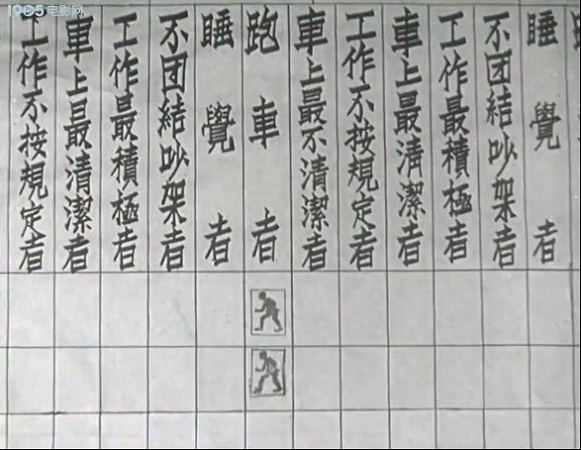 1905电影网
睡覺者
不团結吵架者
工作最積極者
車上最清潔者
工作不按規定者
車上最不清潔者
跑車者
睡覺者
不团結吵架者
工作最積極者
車上最清潔者
工作不按規定者